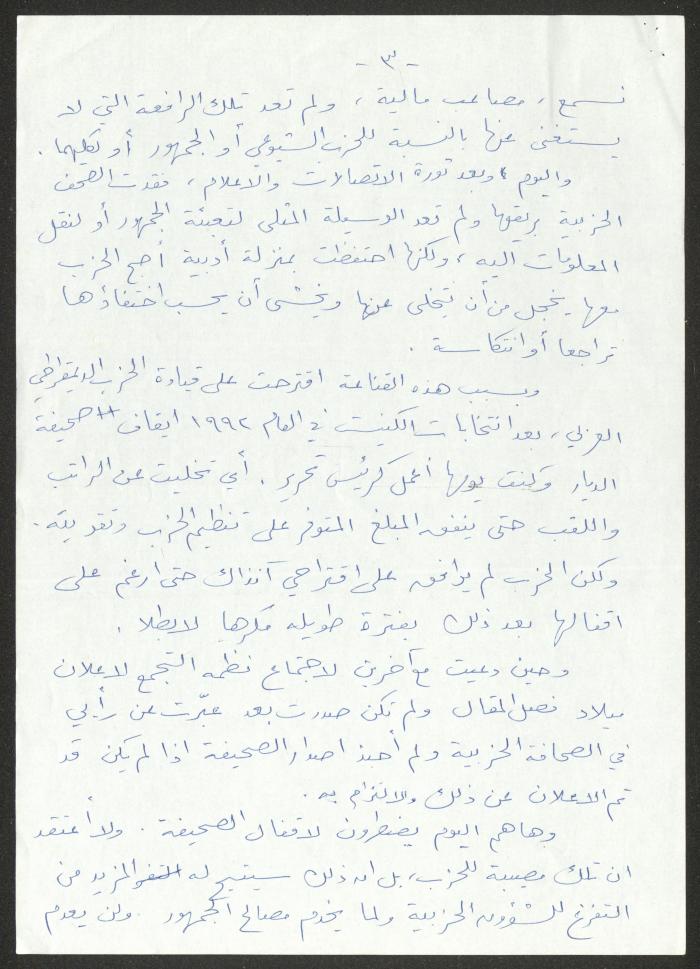 - ٣ -
نسمع، مصاعب مالية، ولم تعد تلك الرافعة التي لا
يستغنى عنها بالنسبة للحزب الشيوعي أو الجمهور أو لكليهما.
واليوم، وبعد ثورة الاتصالات والاعلام، فقدت الصحف
الحزبية بريقها ولم تعد الوسيلة المثلى لتعبئة الجمهور أو لنقل
المعلومات اليه، ولكنها احتفظت بمنزلة أدبية أصبح الحزب
معها يخجل من أن يتخلى عنها ويخشى أن يحسب اختفاؤها
تراجعا أو انتكاسة.
وبسبب هذه القناعة اقترحت على قيادة الحزب الديمقراطي
العربي، بعد انتخابات الكنيست في العام ١٩٩٢ ايقاف صحيفة
الديار وكنت يومها أعمل كرئيس تحرير. أي تخليت عن الراتب
واللقب حتى ينفق المبلغ المتوفر على تنظيم الحزب وتقويته.
ولكن الحزب لم يوافق على اقتراحي آنذاك حتى ارغم على
اقفالها بعد ذلك بفترة طويله مكرها لا بطلا.
وحين دعيت مع آخرين لاجتماع نظمه التجمع لاعلان
ميلاد فصل المقال ولم تكن صدرت بعد عبّرت عن رأيي
في الصحافة الحزبية ولم أحبذ اصدار الصحيفة اذا لم يكن قد
تم الاعلان عن ذلك والالتزام به.
وها هم اليوم يضطرون لاقفال الصحيفة. ولا أعتقد
ان تلك مصيبة للحزب، بل ان ذلك سيتيح له المزيد من
التفرغ للشؤون الحزبية ولما يخدم مصالح الجمهور. ولن يعدم